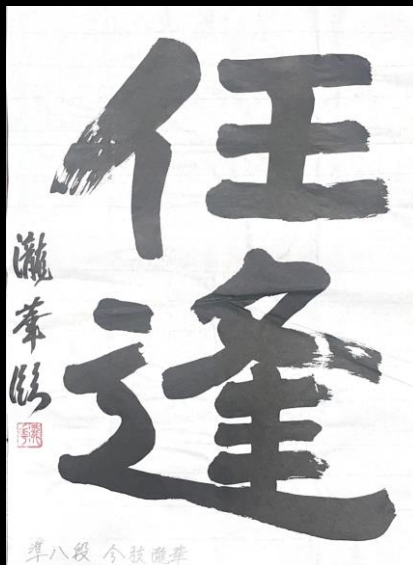 任逢
瀧華臨
準八段 今枝瀧華